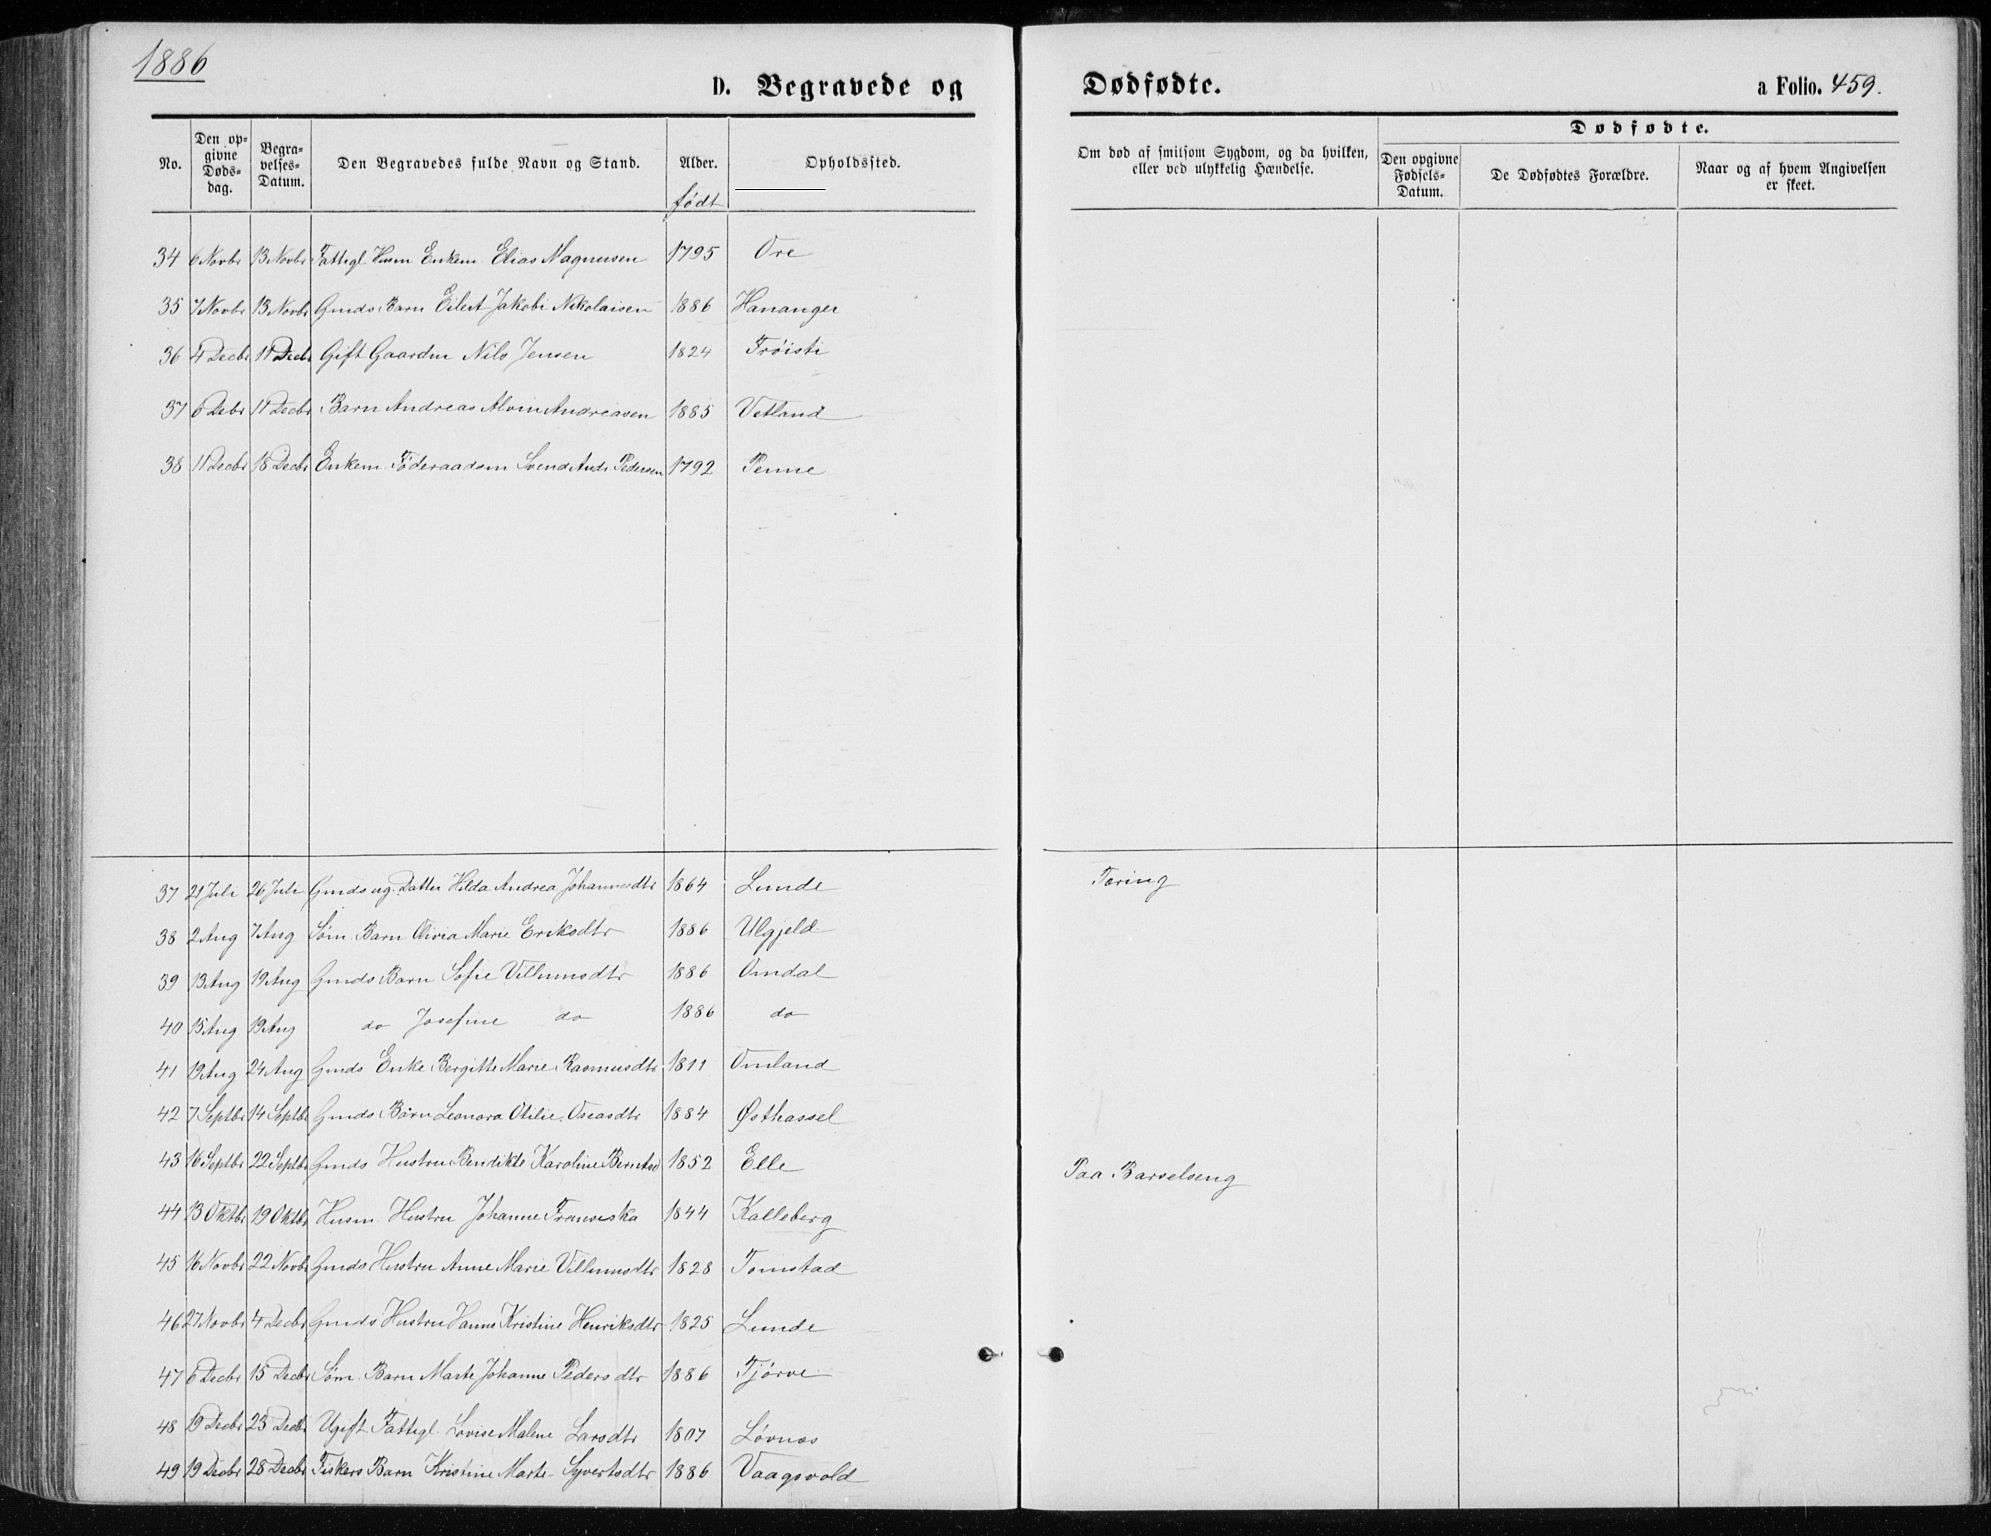 1886
D. Begravede og Dødfødte. a Folio. 459.
No. Den opgivne Dødsdag. Begravelses-Datum. Den Begravedes fulde Navn og Stand. Alder. født Opholdssted. Om død af smitsom Sygdom, og da hvilken, eller ved ulykkelig Hændelse. Dødfødte. Den opgivne Fødsels-Datum. De Dødfødtes Forældre. Naar og af hvem Angivelsen er skeet.
34 6 Novbr 13 Novbr Fattigl Husm Enkem Elias Magnusen 1795 Ore
35 7 Novbr 13 Novbr Gmds Barn Eilert Jakobi Nikolaisen 1886 Hananger
36 4 Decbr 11 Decbr Gift Gaardm Nils Jensen 1824 Frøisti
37 6 Debr 11 Decbr Barn Andreas Alvin Andreasen 1885 Vetland
38 11 Decbr 18 Decbr Enkem Føderaadsm Svend Andr Pedersen 1792 Penne
37 21 Juli 26 Juli Gmds ug. Datter Hilda Andrea Johannesdtr 1864 Lunde Tæring
38 2 Aug 7 Aug Søm. Barn Olivia Marie Eriksdtr 1886 Ulgjeld
39 13 Aug 19 Aug Gmds Barn Sofie Villumsdtr 1886 Omdal
40 15 Aug 19 Aug do Josefine do 1886 do
41 19 Aug 24 Aug Gmds Enke Bergitte Marie Rasmusdtr 1811 Omland
42 7 Septbr 14 Septbr Gmds Barn Leonora Otilie Oseasdtr 1884 Østhassel
43 16 Septbr 22 Septbr Gmds Hustru Bendikte Karoline Berntsd 1852 Elle Paa Barselseng
44 13 Oktbr 19 Oktbr Husm. Hustru Johanne Fransiska 1844 Kalleberg
45 16 Novbr 22 Novbr Gmds Hustru Anne Marie Villumsdtr 1828 Tomstad
46 27 Novbr 4 Decbr Gmds Hustru Hanne Kristine Henriksdtr 1825 Lunde
47 6 Decbr 15 Decbr Søm. Barn Marte Johanne Pedersdtr 1886 Tjørve
48 19 Decbr 23 Decbr Ugift Fattigl. Lovise Malene Larsdtr 1807 Løvnes
49 19 Decbr 28 Decbr Fiskers Barn Kristine Marte Syvertsdtr 1886 Vaagsvold